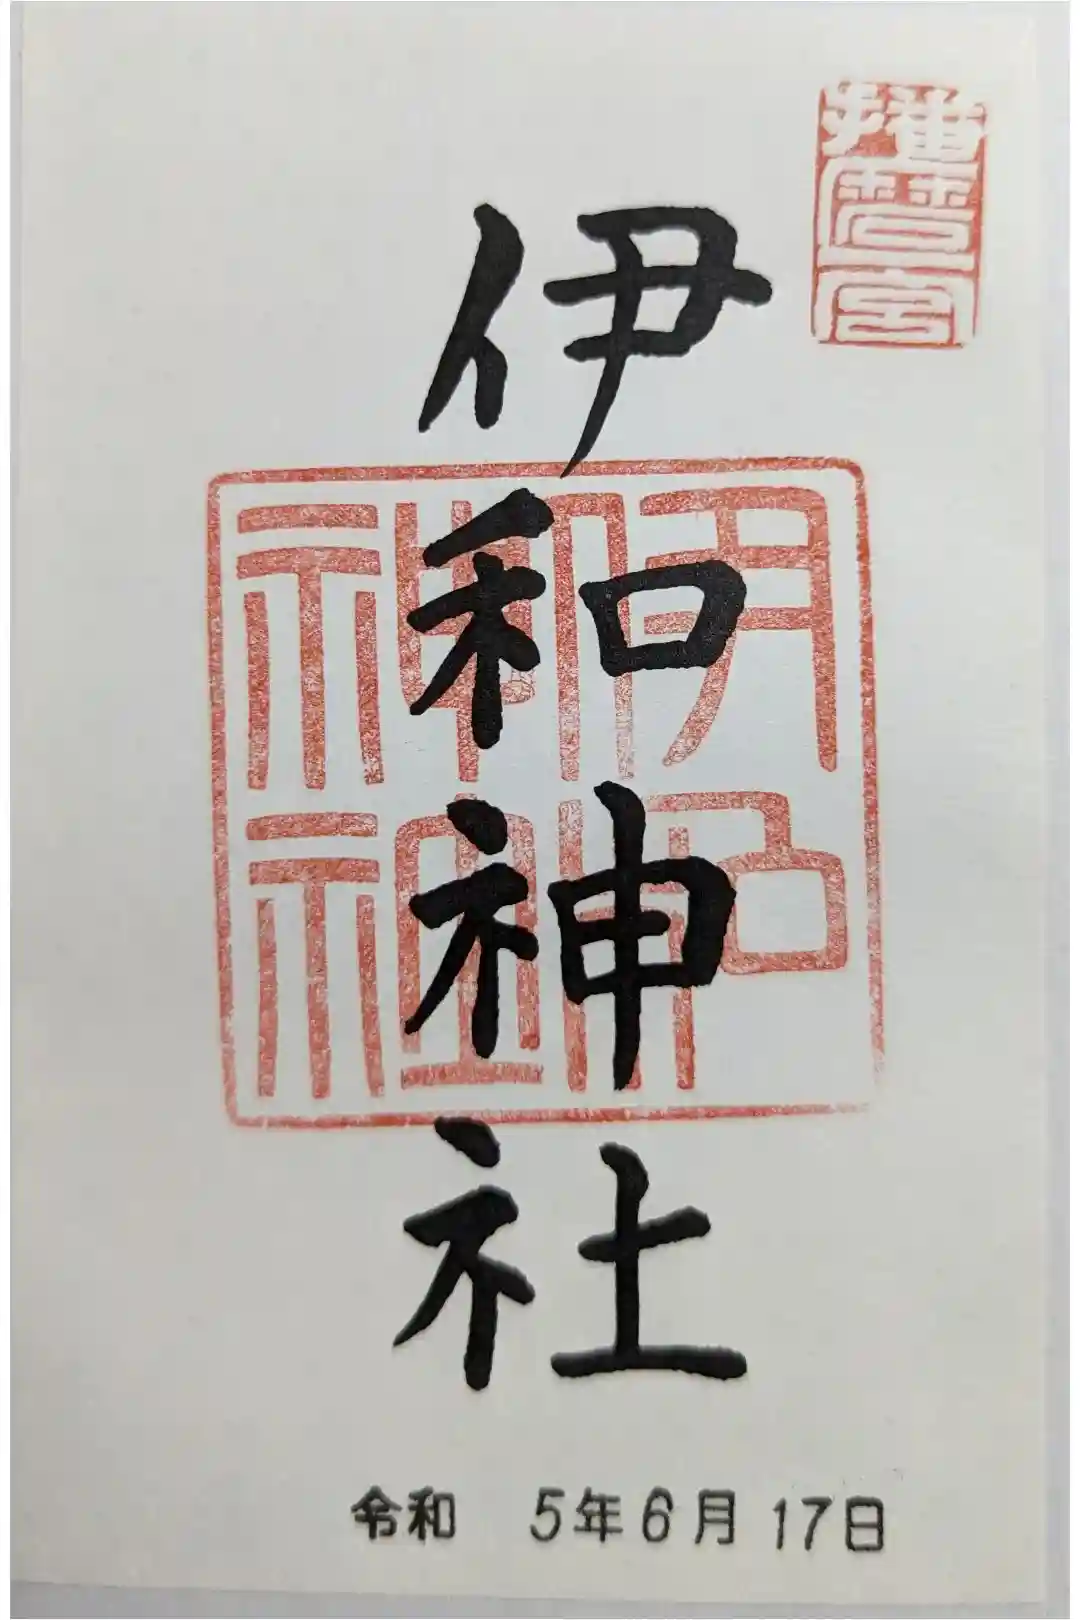 播磨一宮
伊和神社
伊和
神社
令和 5年6月17日